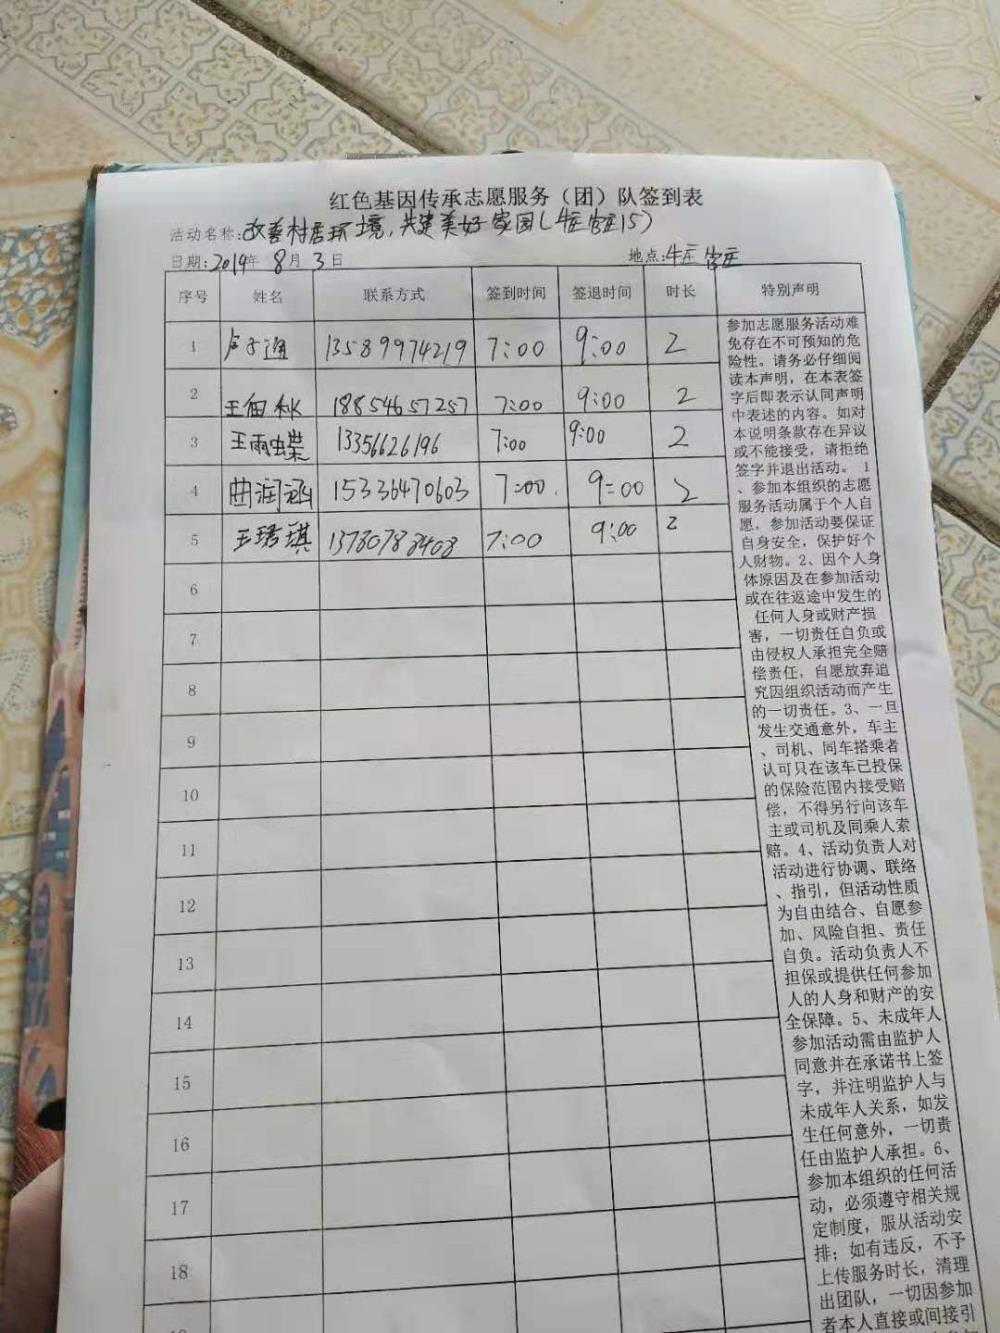 红色基因传承志愿服务（团）队签到表
活动名称:改善村居环境,共建美好家园(牛庄官庄15)
日期:2019年8月3日 地点:牛庄官庄
序号 姓名 联系方式 签到时间 签退时间 时长 特别声明
1 卢子通 13589974219 7:00 9:00 2
2 王佃秋 18854657257 7:00 9:00 2
3 王雨蝶 13356626196 7:00 9:00 2
4 曲润涵 15336470603 7:00 9:00 2
5 王珺琪 13780788408 7:00 9:00 2
6
7
8
9
10
11
12
13
14
15
16
17
18
参加志愿服务活动难
免存在不可预知的危
险性。请务必仔细阅
读本声明，在本表签
字后即表示认同声明
中表述的内容。如对
本说明条款存在异议
或不能接受，请拒绝
签字并退出活动。 1
、参加本组织的志愿
服务活动属于个人自
愿，参加活动要保证
自身安全，保护好个
人财物。2、因个人身
体原因及在参加活动
或在往返途中发生的
任何人身或财产损
害，一切责任自负或
由侵权人承担完全赔
偿责任，自愿放弃追
究因组织活动而产生
的一切责任。3、一旦
发生交通意外，车主
、司机、同车搭乘者
认可只在该车已投保
的保险范围内接受赔
偿，不得另行向该车
主或司机及同乘人索
赔。4、活动负责人对
活动进行协调、联络
、指引，但活动性质
为自由结合、自愿参
加、风险自担、责任
自负。活动负责人不
担保或提供任何参加
人的人身和财产的安
全保障。5、未成年人
参加活动需由监护人
同意并在承诺书上签
字，并注明监护人与
未成年人关系，如发
生任何意外，一切责
任由监护人承担。6、
参加本组织的任何活
动，必须遵守相关规
定制度，服从活动安
排；如有违反，不予
上传服务时长，清理
出团队，一切因参加
者本人直接或间接引